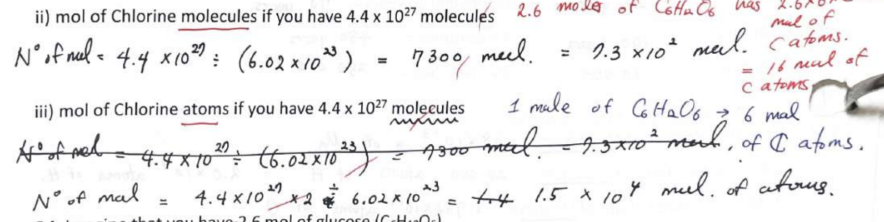 ii) mol of Chlorine molecules if you have 4.4 x 10²⁷ molecules 2.6 moles of C6H12O6 has 2.6x6
mol of
C atoms.
= 16 mol of
C atoms
N° of mol = 4.4 x10²⁷ ÷ (6.02 x10²³) = 7300 mol. = 7.3 x10² mol.
iii) mol of Chlorine atoms if you have 4.4 x 10²⁷ molecules 1 mole of C6H12O6 → 6 mol
of C atoms.
N° of mol = 4.4 x 10²⁷ ÷ (6.02 x 10²³) = 7300 mol. = 7.3 x10² mol.
N° of mol = 4.4 x10²⁷ x 2 ÷ 6.02 x10²³ = 1.4 1.5 x 10⁴ mol. of atoms.